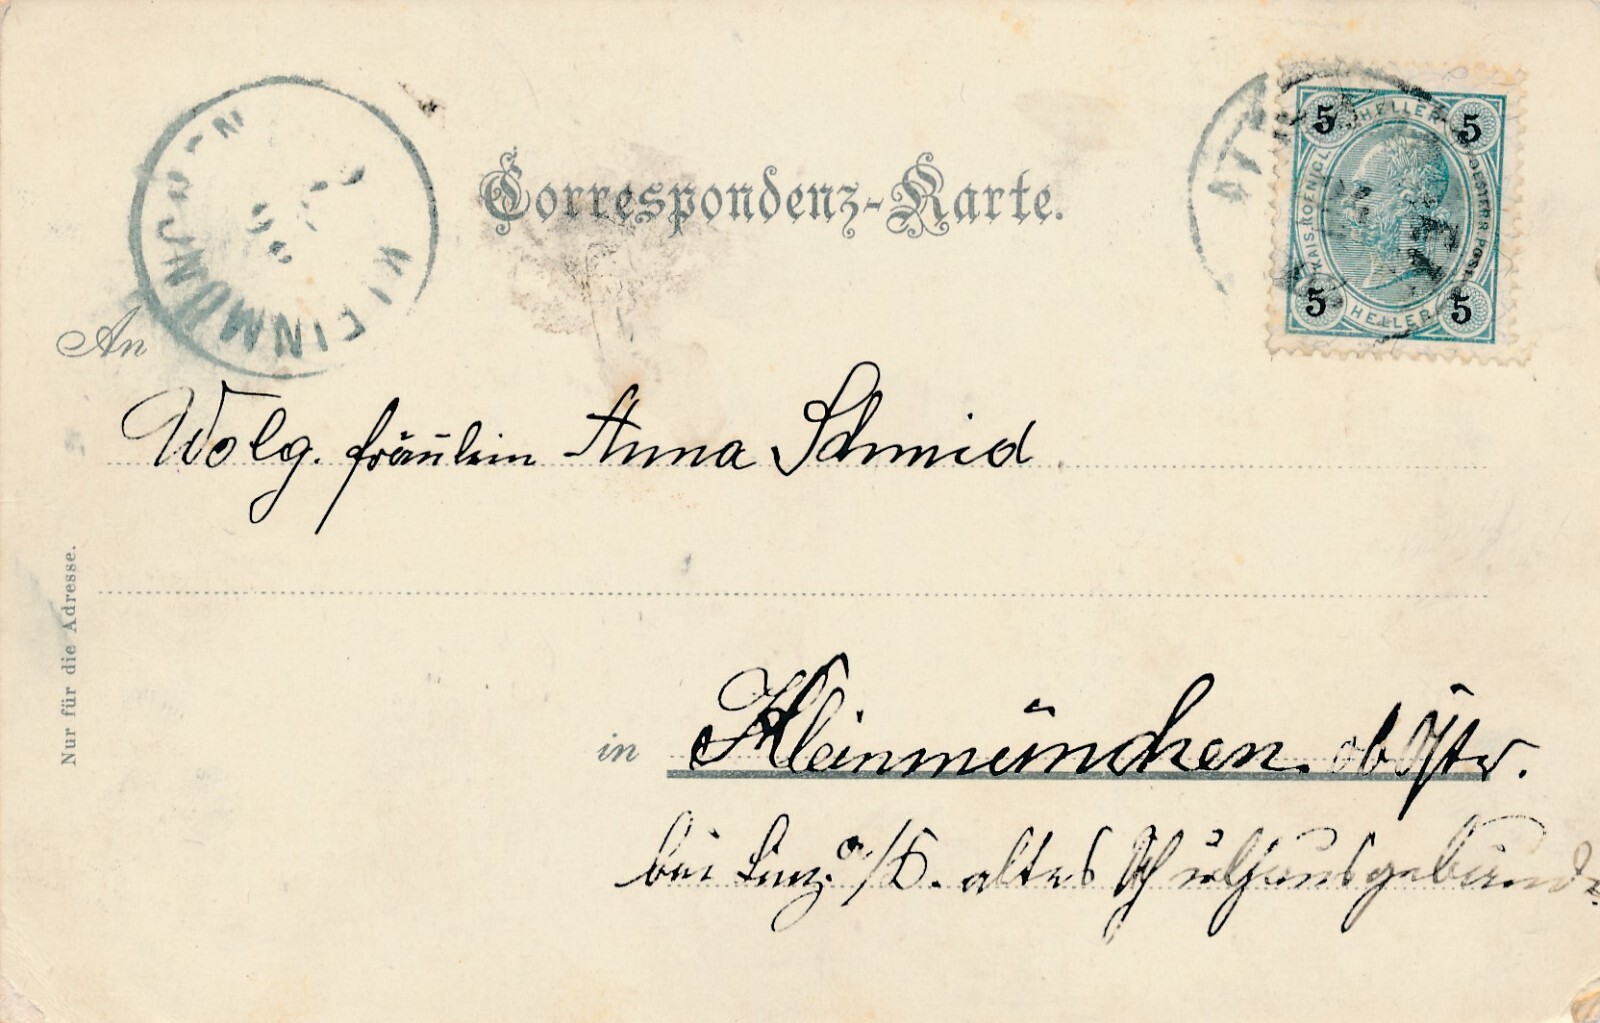 Correspondenz-Karte.
KLEINMÜNCHEN
5 HELLER 5
KAIS. KOENIGL. OESTERR. POST
5 HELLER 5
An
Wolg. fräulein Anna Schmid
Nur für die Adresse.
in Kleinmünchen. ob Östr.
bei Linz a/D. altes Schulhausgebäude